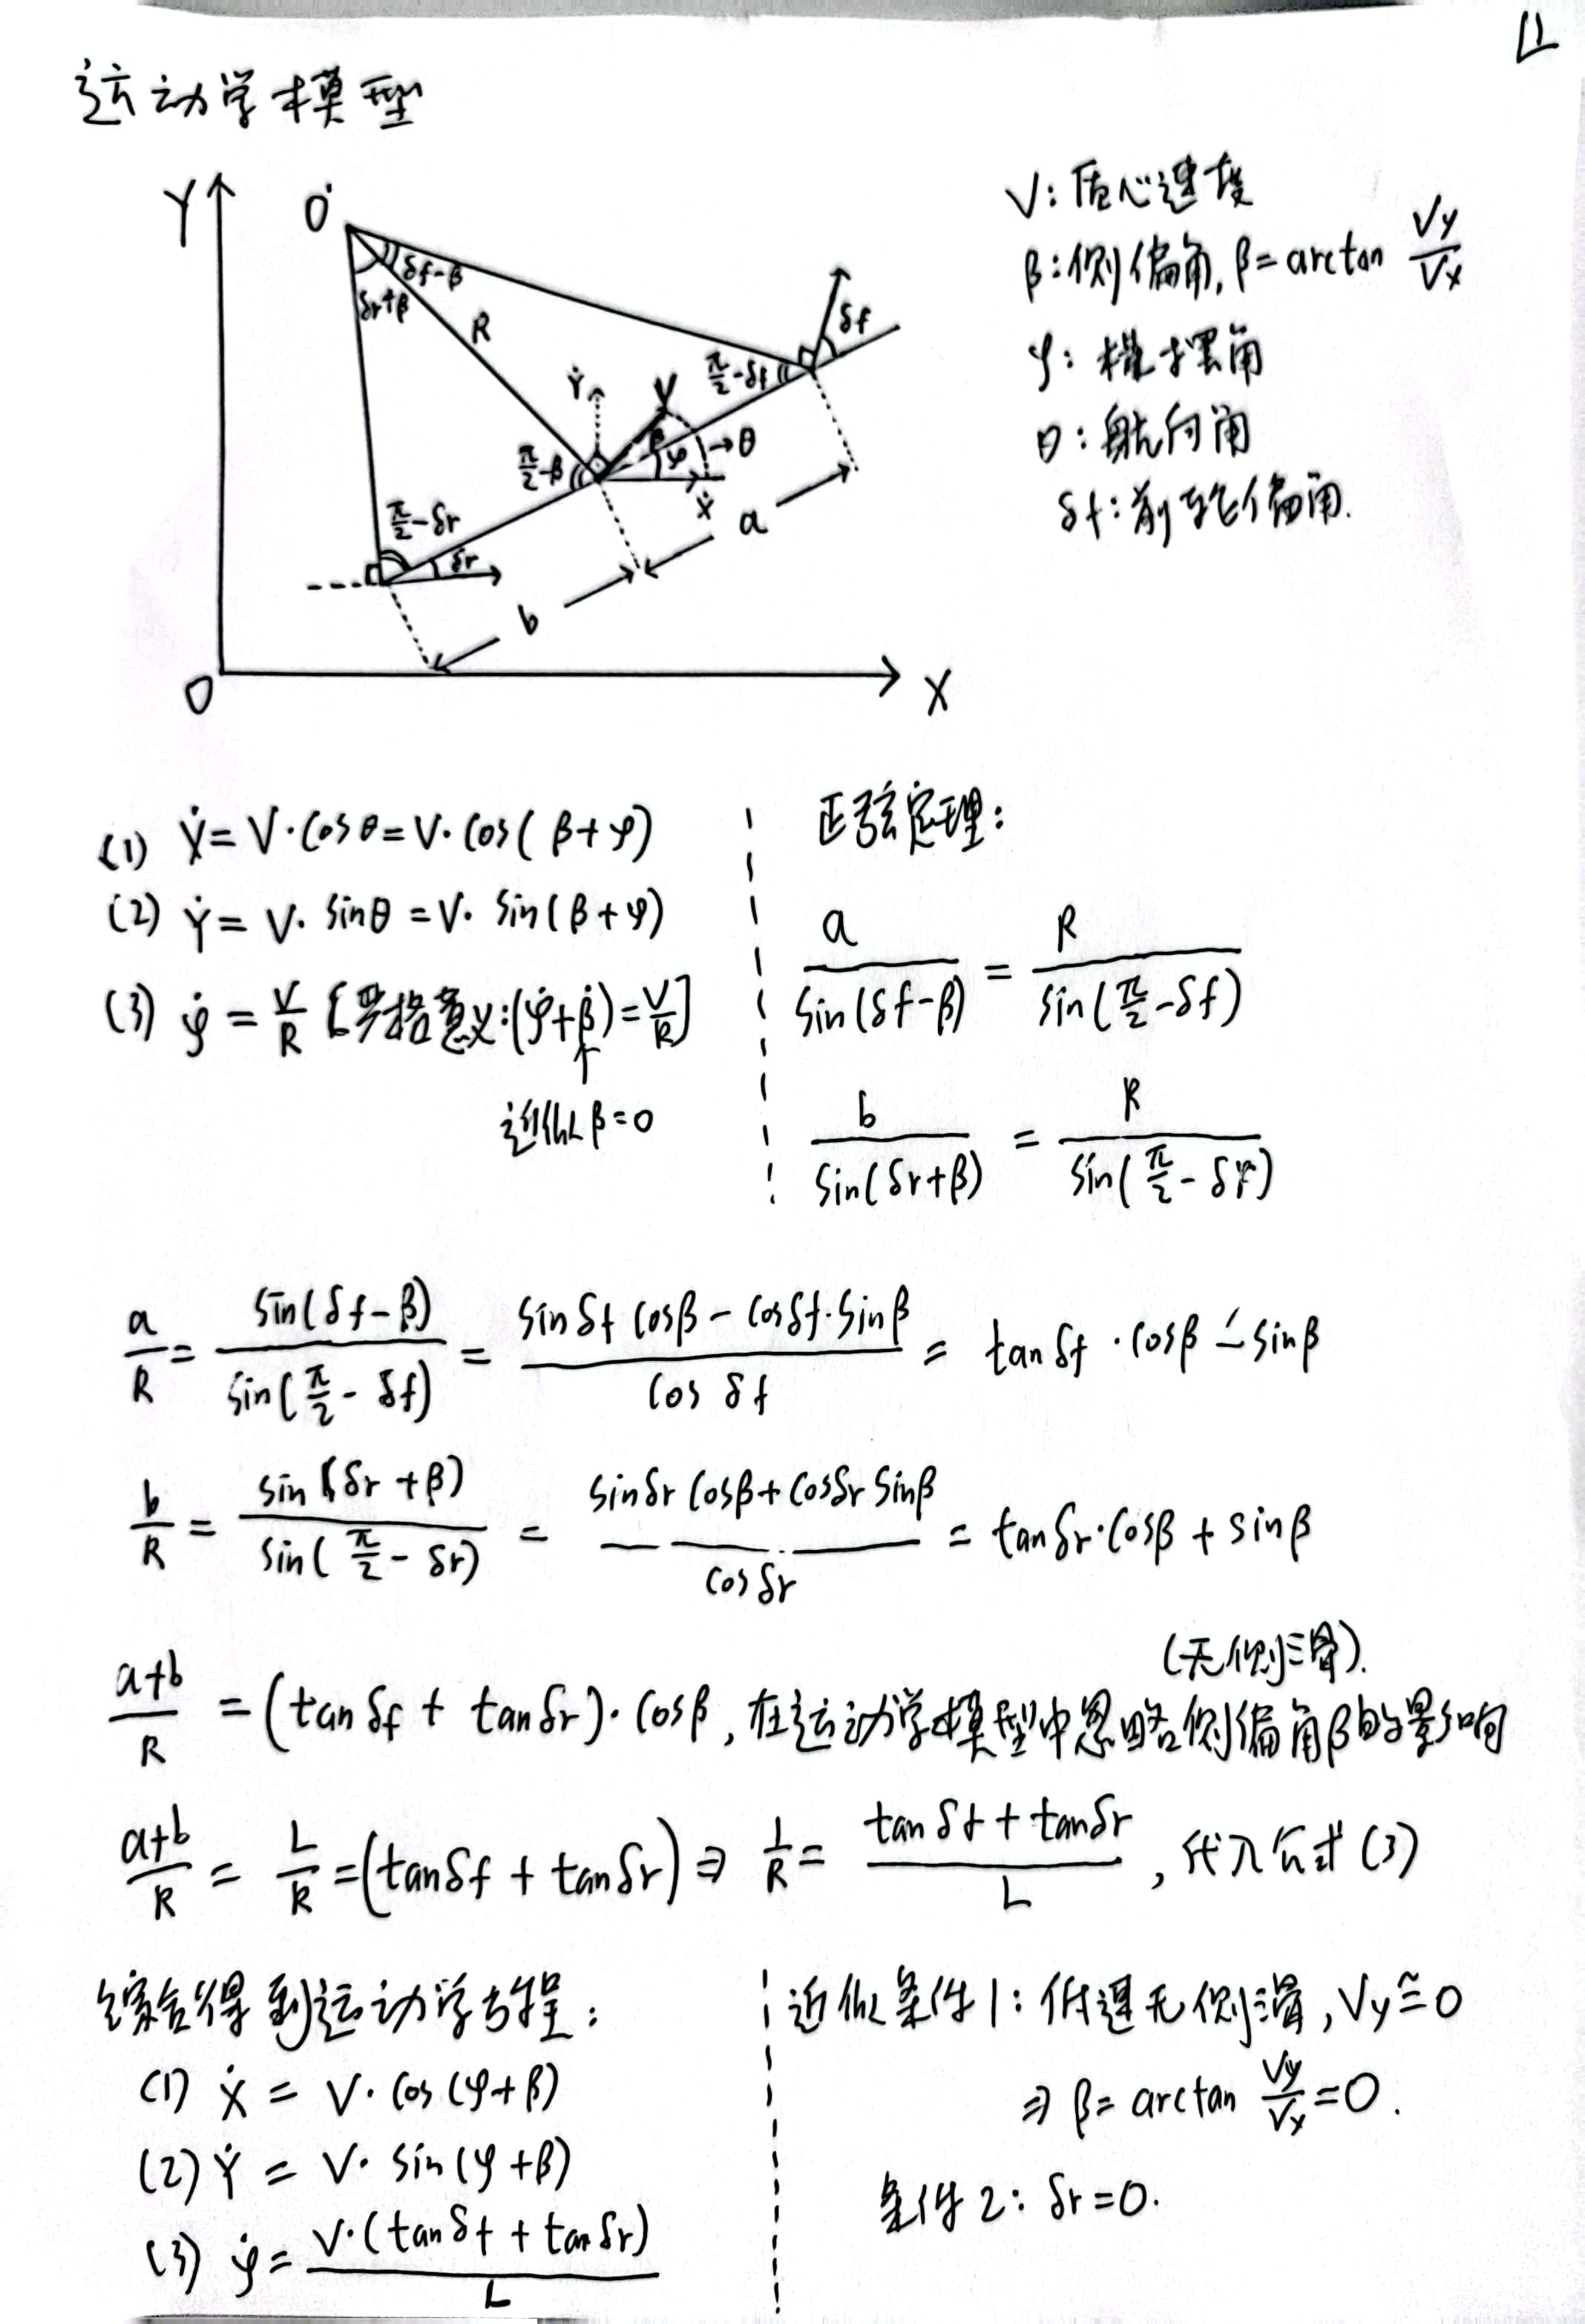 L1
运动学模型
Y
O'
δf-β
δr+β
R
δf
π/2-δf
Ẏ
V
β
φ
→θ
Ẋ
π/2-β
π/2-δr
δr
a
b
O
X
V: 质心速度
β: 侧偏角, β=arctan Vy/Vx
φ: 横摆角
θ: 航向角
δf: 前轮偏角.
(1) Ẋ=V·cosθ=V·cos(β+φ)
(2) Ẏ=V·sinθ=V·sin(β+φ)
(3) φ̇=V/R [严格意义:(φ̇+β̇)=V/R]
↑
近似β=0
正弦定理:
a/sin(δf-β) = R/sin(π/2-δf)
b/sin(δr+β) = R/sin(π/2-δr)
a/R = sin(δf-β)/sin(π/2-δf) = (sinδf cosβ-cosδf·sinβ)/cosδf = tanδf·cosβ-sinβ
b/R = sin(δr+β)/sin(π/2-δr) = (sinδr cosβ+cosδr sinβ)/cosδr = tanδr·cosβ+sinβ
(无侧滑).
(a+b)/R = (tanδf+tanδr)·cosβ, 在运动学模型中忽略侧偏角β的影响
(a+b)/R = L/R = (tanδf+tanδr) ⇒ 1/R = (tanδf+tanδr)/L, 代入公式(3)
综合得到运动学方程:
(1) Ẋ = V·cos(φ+β)
(2) Ẏ = V·sin(φ+β)
(3) φ̇ = V·(tanδf+tanδr)/L
近似条件1: 低速无侧滑, Vy≅0
⇒ β=arctan Vy/Vx=0.
条件2: δr=0.